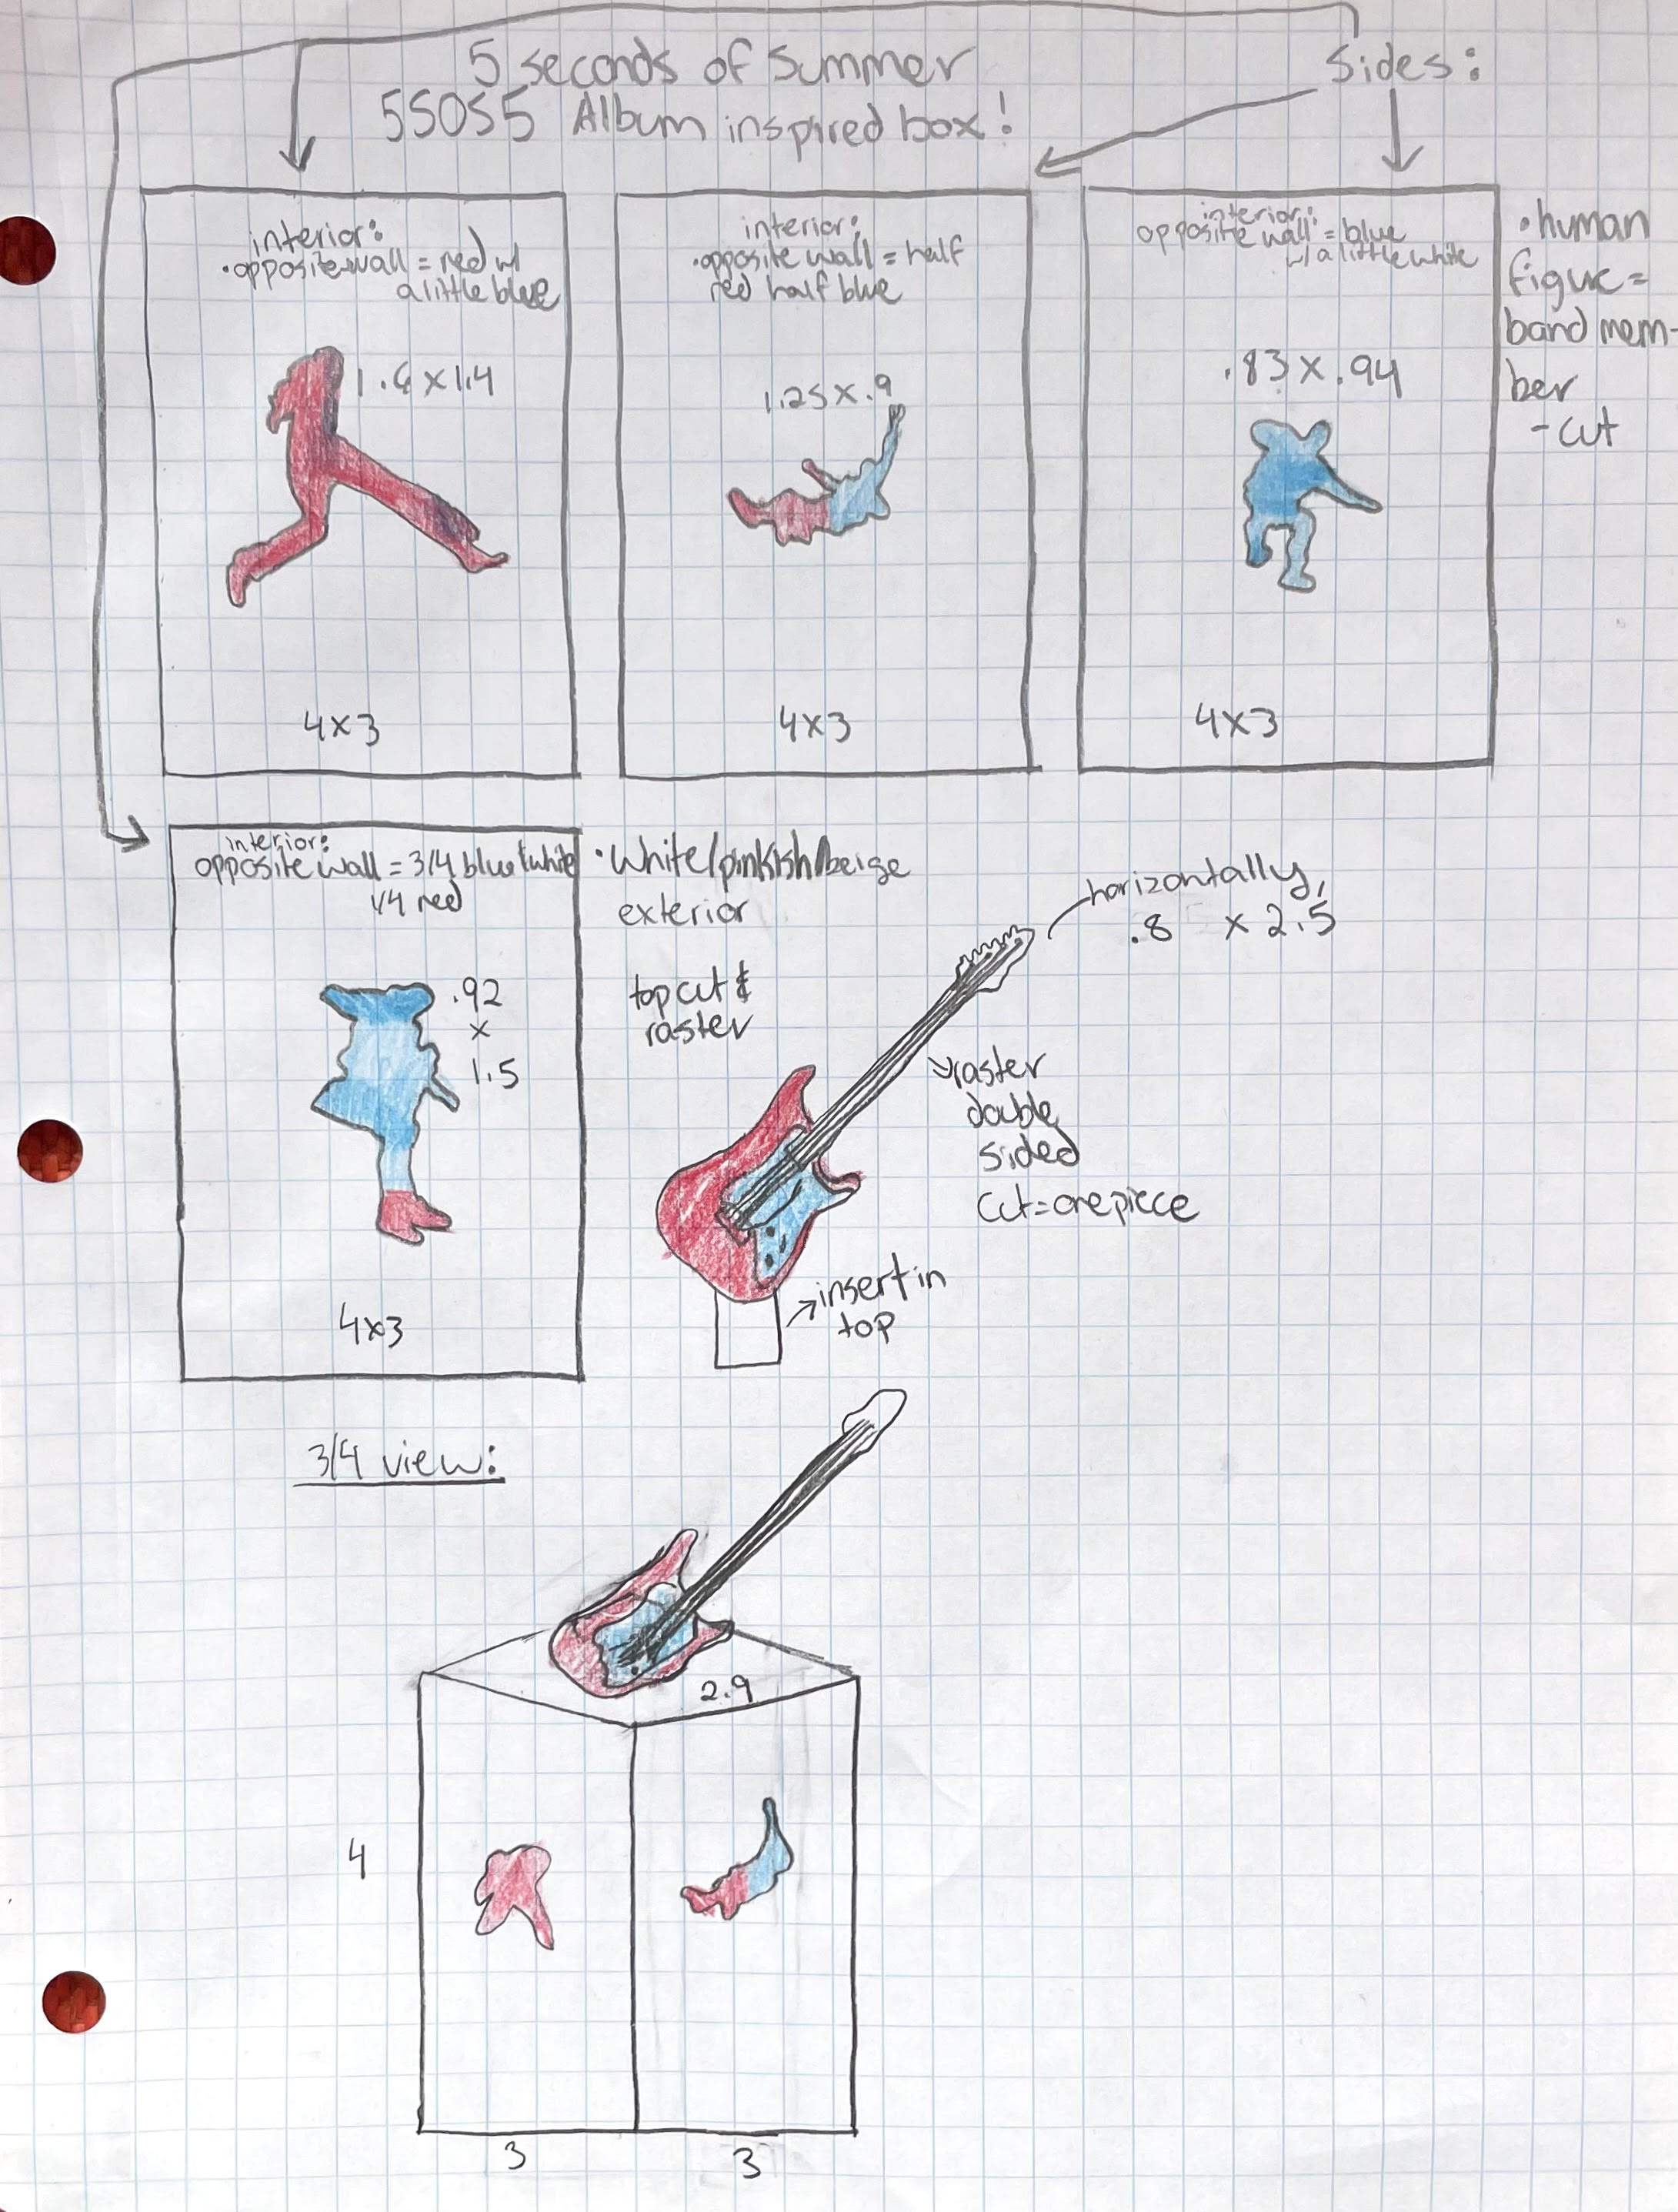 5 seconds of Summer
5SOS5 Album inspired box!
Sides:
interior:
• opposite wall = red w/
a little blue
1.6 x 1.4
4x3
interior:
• opposite wall = half
red half blue
1.25 x .9
4x3
interior:
opposite wall = blue
w/ a little white
.83 x .94
4x3
• human
figure =
band mem-
ber
- cut
interior:
opposite wall = 3/4 blue & white
1/4 red
.92
x
1.5
4x3
• White/pinkish/beige
exterior
top cut &
raster
horizontally,
.8 x 2.5
raster
double
sided
Cut = one piece
insert in
top
3/4 view:
2.9
4
3
3